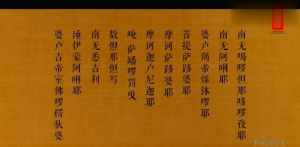 南无喝啰怛那哆啰夜耶
南无阿唎耶
婆卢羯帝烁钵啰耶
菩提萨跢婆耶
摩诃萨跢婆耶
摩诃迦卢尼迦耶
唵萨皤啰罚曳
数怛那怛写
南无悉吉利
埵伊蒙阿唎耶
婆卢吉帝室佛啰楞驮婆